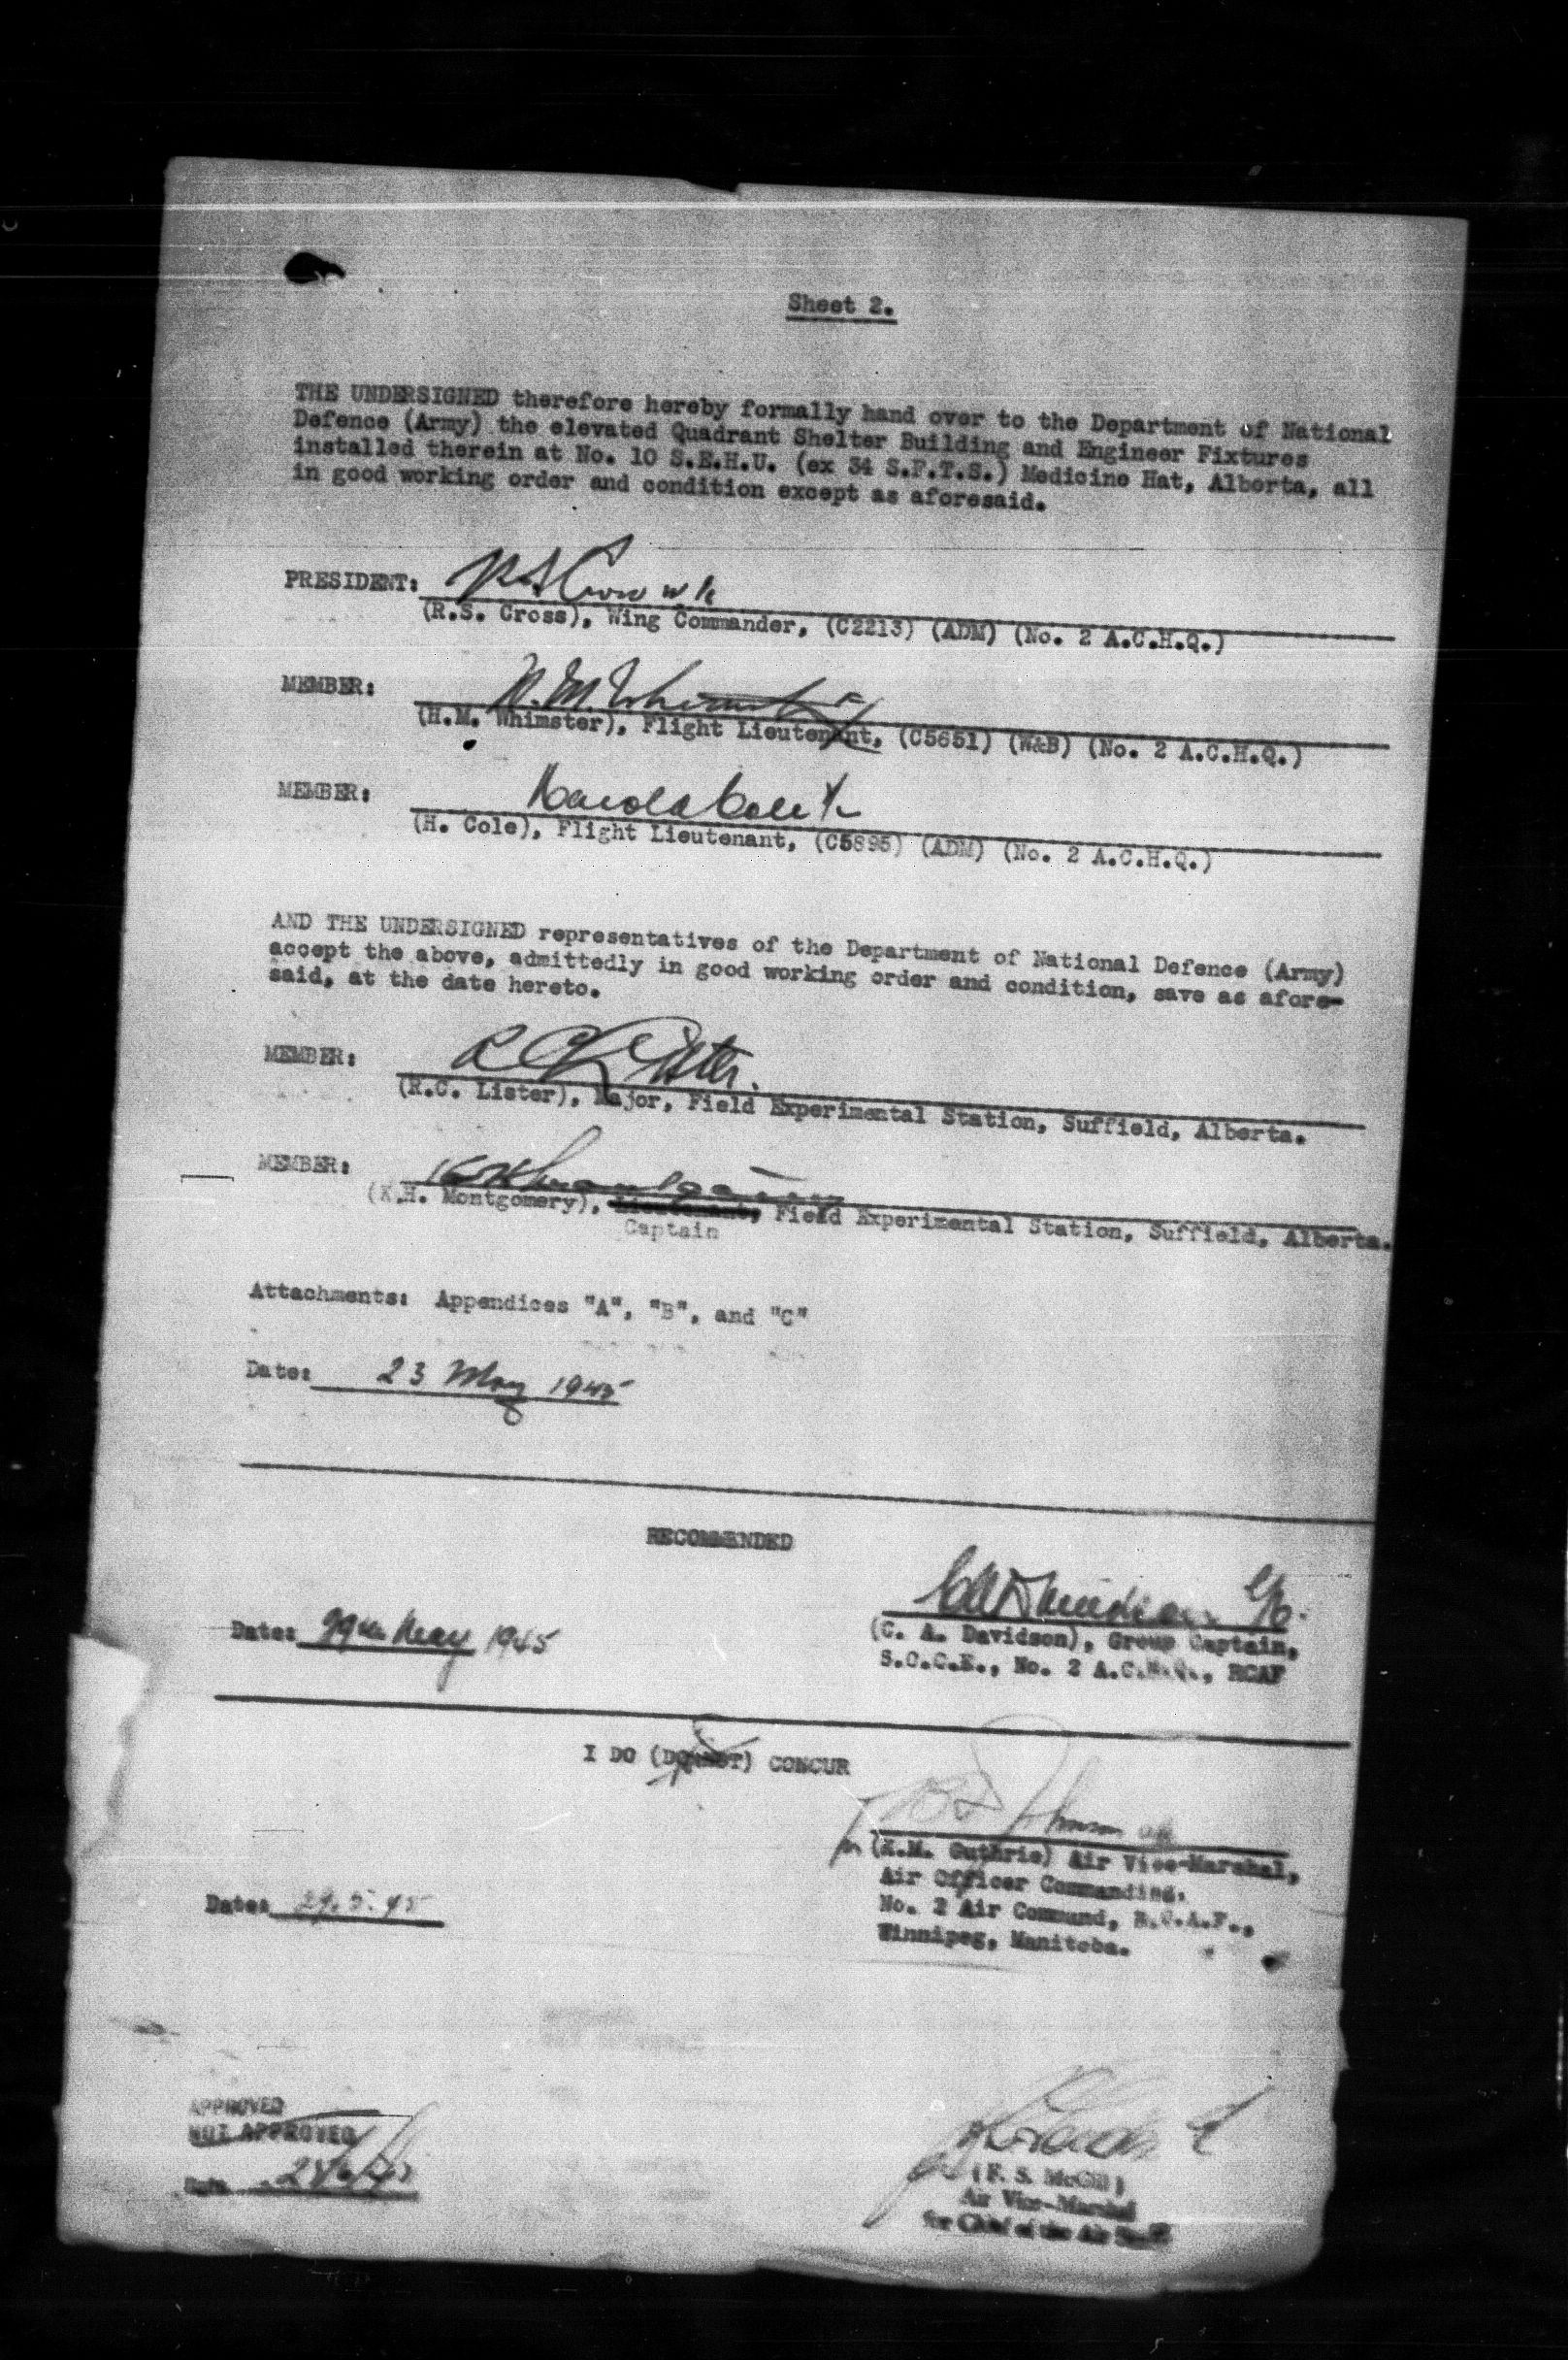 Sheet 2.
THE UNDERSIGNED therefore hereby formally hand over to the Department of National
Defence (Army) the elevated Quadrant Shelter Building and Engineer Fixtures
installed therein at No. 10 S.E.H.U. (ex 34 S.F.T.S.) Medicine Hat, Alberta, all
in good working order and condition except as aforesaid.
PRESIDENT: R S Cross w/c
(R.S. Cross), Wing Commander, (C2213) (ADM) (No. 2 A.C.H.Q.)
MEMBER: H. M. Whimster
(H.M. Whimster), Flight Lieutenant, (C5651) (W&B) (No. 2 A.C.H.Q.)
MEMBER: Harold Cole
(H. Cole), Flight Lieutenant, (C5895) (ADM) (No. 2 A.C.H.Q.)
AND THE UNDERSIGNED representatives of the Department of National Defence (Army)
accept the above, admittedly in good working order and condition, save as afore-
said, at the date hereto.
MEMBER: R C Lister.
(R.C. Lister), Major, Field Experimental Station, Suffield, Alberta.
MEMBER: K H Montgomery
(K.H. Montgomery), Lieutenant, Field Experimental Station, Suffield, Alberta.
Captain
Attachments: Appendices "A", "B", and "C"
Date: 23 May 1945
RECOMMENDED
C A Davidson G/C.
Date: 29th May 1945
(C. A. Davidson), Group Captain,
S.O.C.E., No. 2 A.C.H.Q., RCAF
I DO (DO NOT) CONCUR
(K.M. Guthrie) Air Vice-Marshal,
Air Officer Commanding.
No. 2 Air Command, R.C.A.F.,
Winnipeg, Manitoba.
Date: 29.5.45
APPROVED
NOT APPROVED
Date
(F. S. McGill)
Air Vice-Marshal
for Chief of the Air Staff